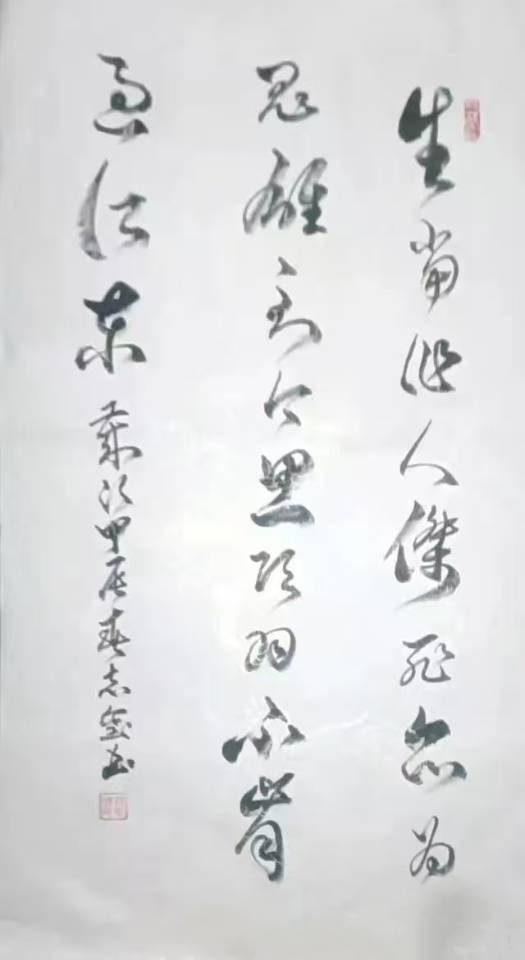 生当作人傑死亦为
鬼雄至今思项羽不肯
过江东 岁次甲辰春志金书